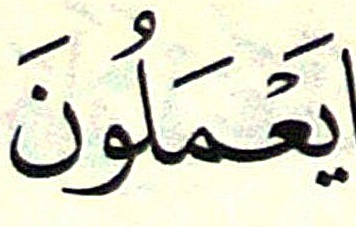 ا يَعْمَلُونَ